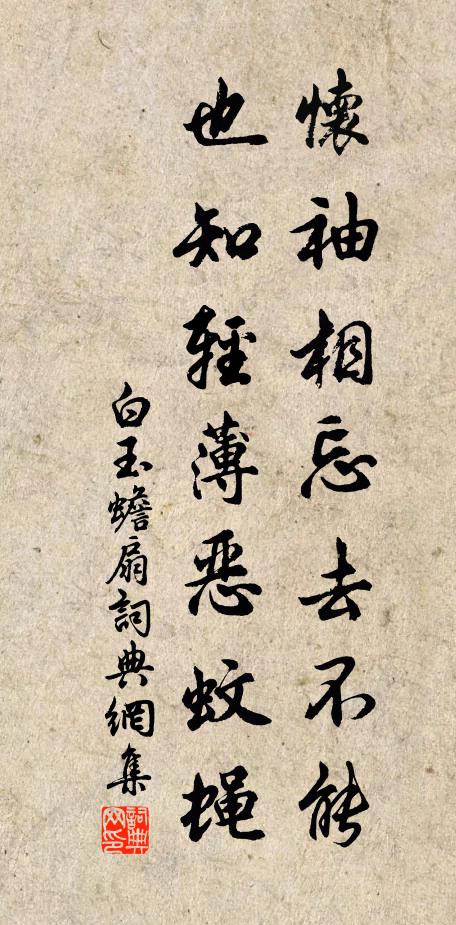 懷袖相忘去不能
也知輕薄惡蚊蝇
白玉蟾扇詞典網集
詞典網印